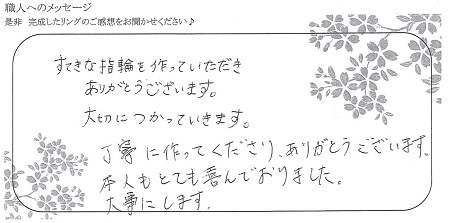 職人へのメッセージ
是非 完成したリングのご感想をお聞かせください♪
すてきな指輪を作っていただき
ありがとうございます。
大切につかっていきます。
丁寧に作ってくださり、ありがとうございます。
本人もとても喜んでおりました。
大事にします。